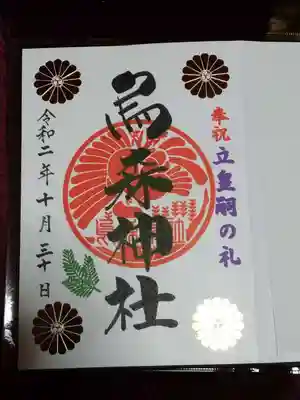 奉祝 立皇嗣の礼
烏森神社
令和二年十月三十日